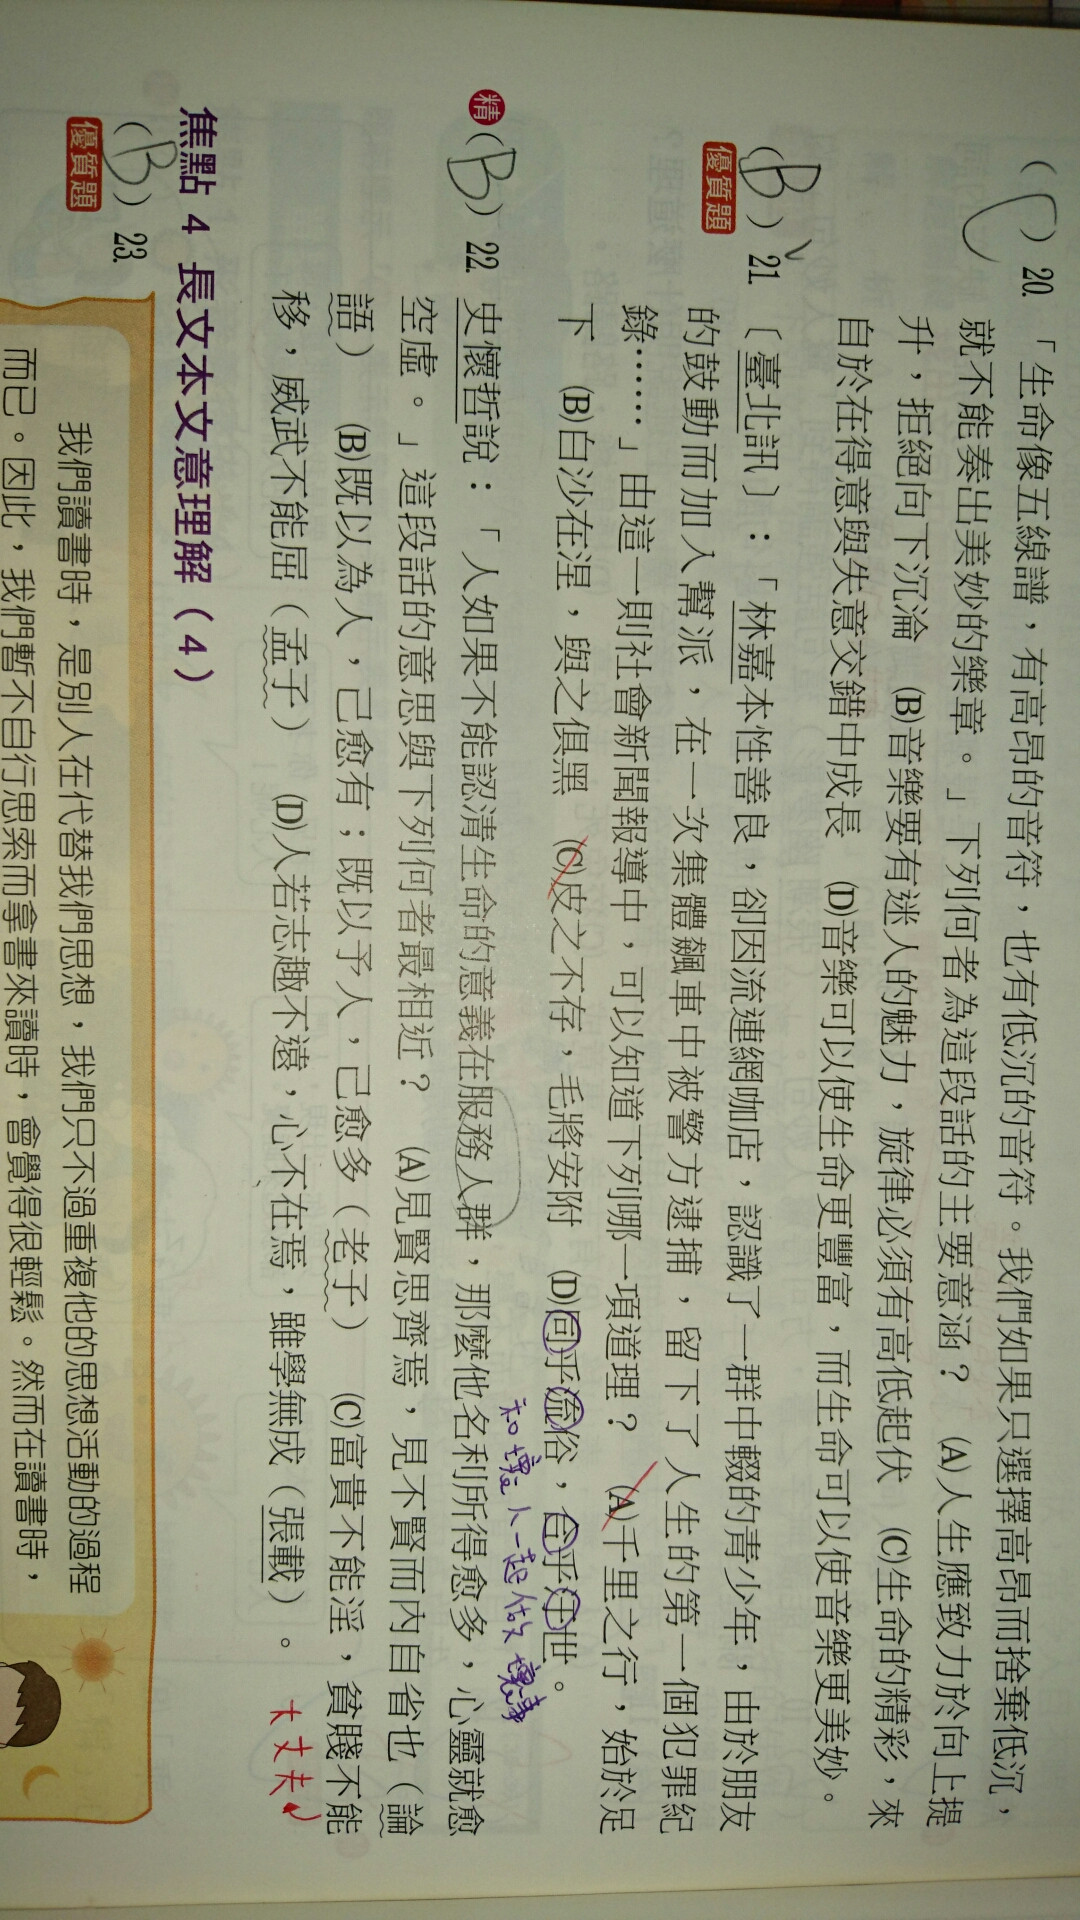 (C) 20. 「生命像五線譜，有高昂的音符，也有低沉的音符。我們如果只選擇高昂而捨棄低沉，
就不能奏出美妙的樂章。」下列何者為這段話的主要意涵？　(A)人生應致力於向上提
升，拒絕向下沉淪　(B)音樂要有迷人的魅力，旋律必須有高低起伏　(C)生命的精彩，來
自於在得意與失意交錯中成長　(D)音樂可以使生命更豐富，而生命可以使音樂更美妙。
(B) 21. 〔臺北訊〕：「林嘉本性善良，卻因流連網咖店，認識了一群中輟的青少年，由於朋友
優質題
的鼓動而加入幫派，在一次集體飆車中被警方逮捕，留下了人生的第一個犯罪紀
錄……」由這一則社會新聞報導中，可以知道下列哪一項道理？　(A)千里之行，始於足
下　(B)白沙在涅，與之俱黑　(C)皮之不存，毛將安附　(D)同乎流俗，合乎汙世。
和壞人一起做壞事
精 (B) 22. 史懷哲說：「人如果不能認清生命的意義在服務人群，那麼他名利所得愈多，心靈就愈
空虛。」這段話的意思與下列何者最相近？　(A)見賢思齊焉，見不賢而內自省也（論
語）　(B)既以為人，己愈有；既以予人，己愈多（老子）　(C)富貴不能淫，貧賤不能
移，威武不能屈（孟子）　(D)人若志趣不遠，心不在焉，雖學無成（張載）。
大丈夫
焦點 4 長文本文意理解（4）
(B) 23.
優質題
我們讀書時，是別人在代替我們思想，我們只不過重複他的思想活動的過程
而已。因此，我們暫不自行思索而拿書來讀時，會覺得很輕鬆。然而在讀書時，